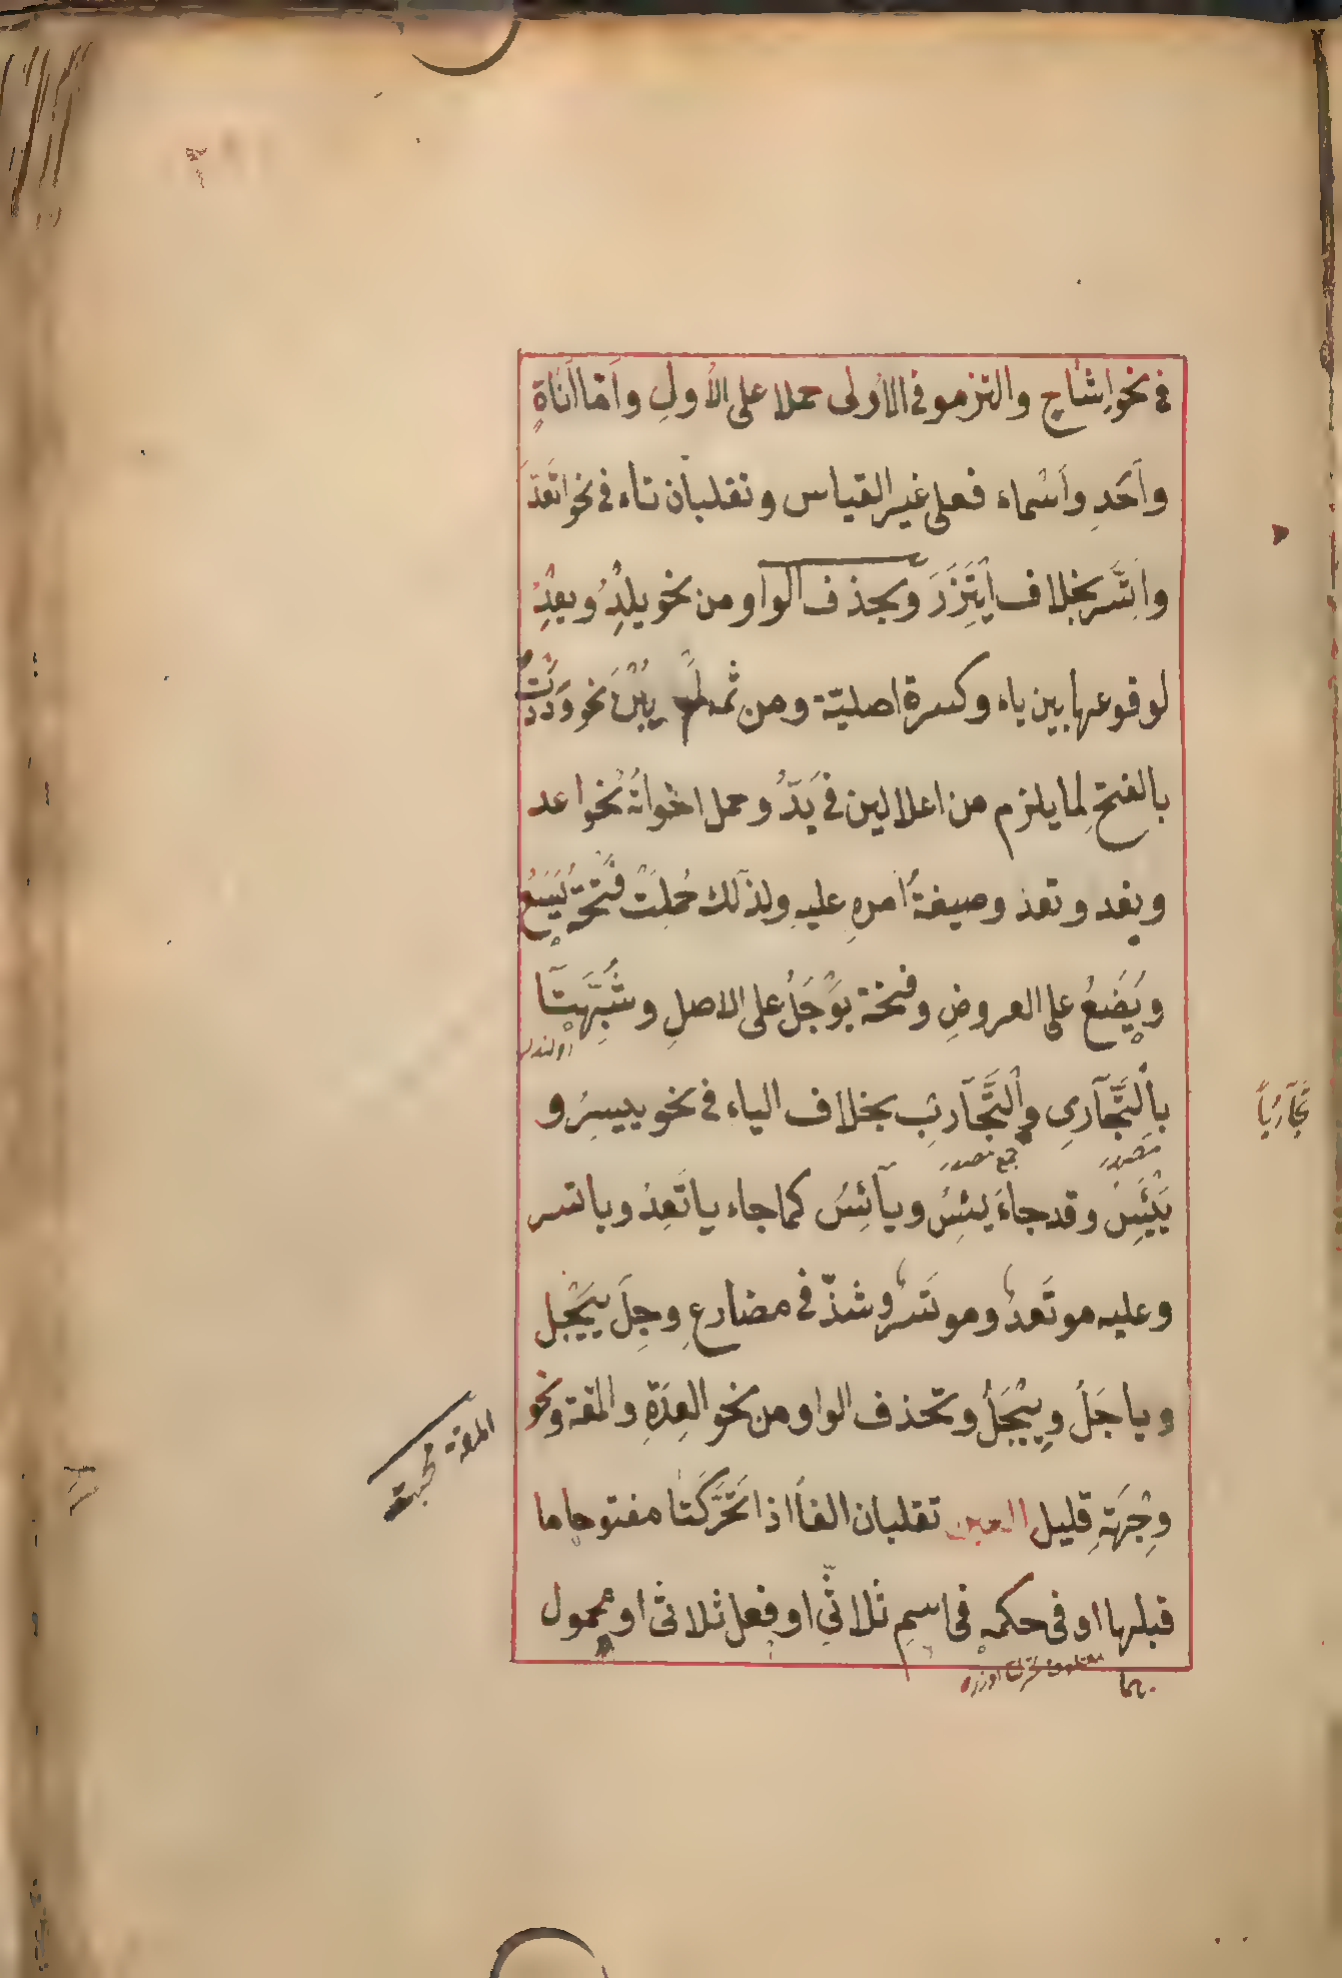 في نحو اِشَاحٍ والتزموه في الاُولى حملا على الاُولِ واَمّا اَنَاةٍ
واَحَدِ واَسْماء فعلى غير القياس وتقلبان تاء في نحو اتّعَدَ
واتَّسَر بخلاف اِيْتَزَرَ وتحذف الواو من نحو يلِدُ ويعِدُ
لوقوعها بين ياء وكسرة اصليّة ومن ثمه لم يُبْنَ نحو وَدَدْتُ
بالفتحِ لما يلزم من اعلالين في يَدُّ وحمل اخواتُهُ نحو اعد
ونعد وتعد وصيغةُ امرهِ عليهِ ولذلك حُمِلَتْ فَتْحَةُ يَسَعُ
ويَضَعُ على العروضِ وفتحة يَوْجَلُ على الاصلِ وشُبِّهَتَا
بِالتَّجَارِى والتَّجَارِبِ بخلاف الياء في نحو ييسِرُ و
يَيْئِسُ وقد جاءَ يئِسُ ويآئِسُ كما جاء ياتَعِدُ وياتسر
وعليه موتَعدٌ وموتَسرٌ وشذّ في مضارعِ وجِلَ يِيْجَل
وياجَلُ ويِيْجَلُ وتحذف الواو من نحو العِدَةِ والمقة ونحو
وِجْهَةٍ قليل العين تقلبان الفاً اذا تَحَرَّكَتا مفتوحا ما
قبلها او في حكمه في اسمٍ ثلاثيّ او فعل ثلاثى او محمول
تَجَارُباً
مصدر
جمع مصدر
المقة محبت